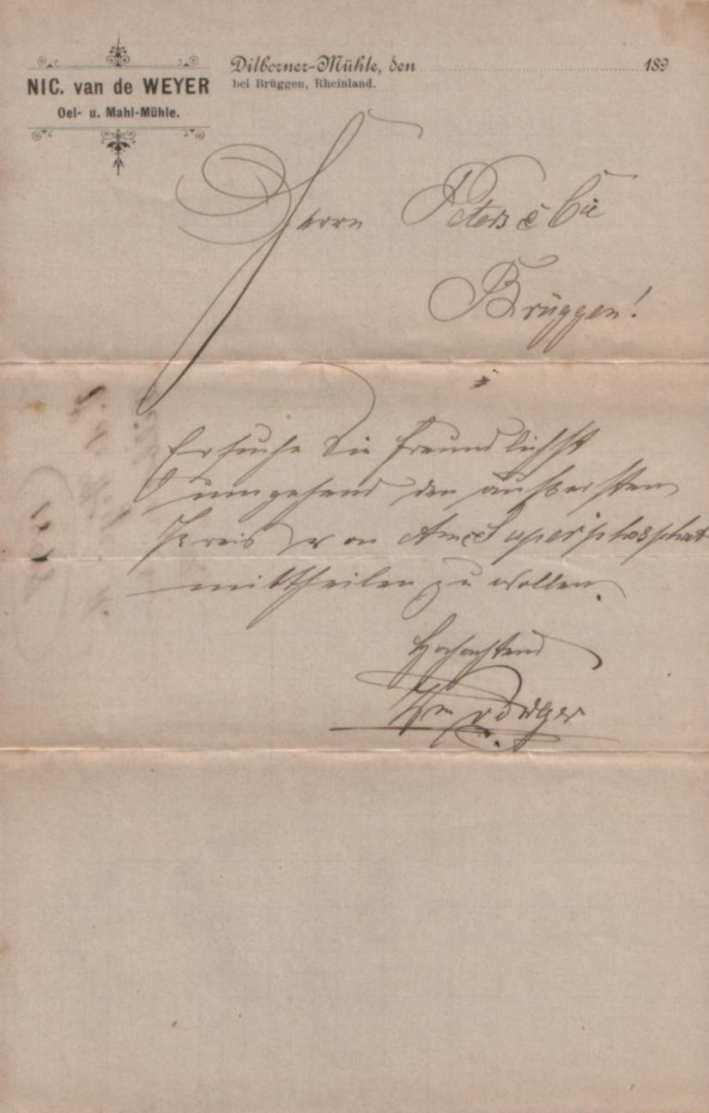 NIC. van de WEYER
Oel- u. Mahl-Mühle.
Dilborner-Mühle, den 189
bei Brüggen, Rheinland.
Herrn Peters & Cie
Brüggen!
Ersuche Sie freundlichst
umgehend den äußersten
Preis von Superphosphat
mittheilen zu wollen.
Hochachtend